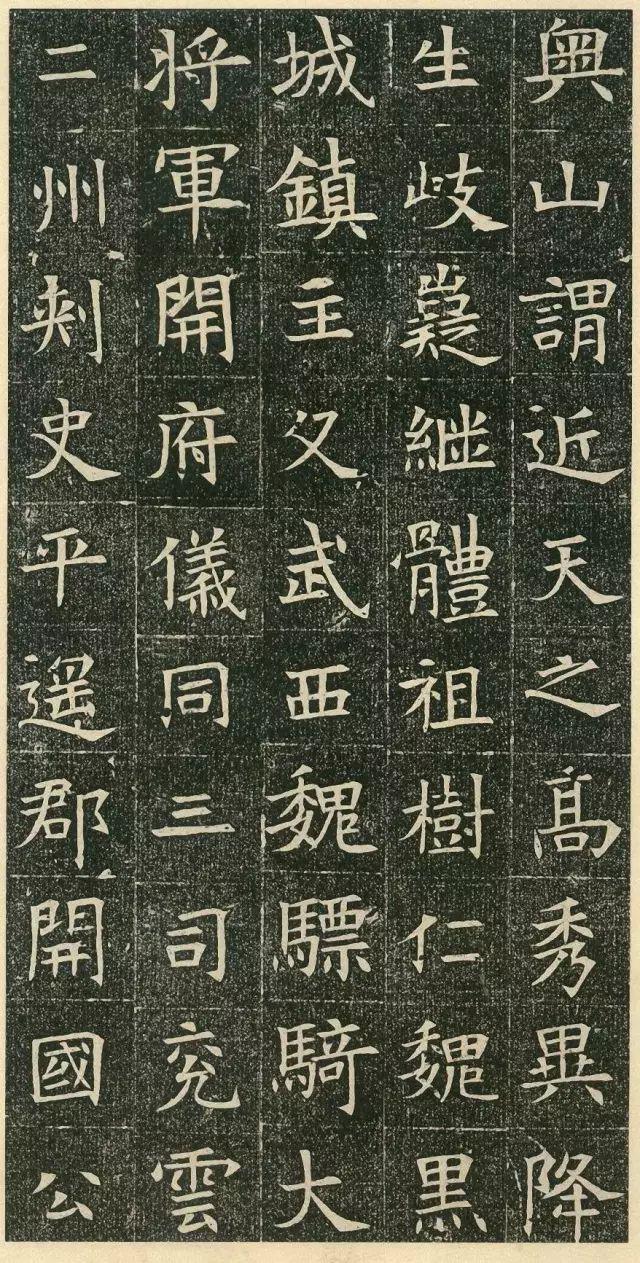 奧山謂近天之高秀異降
生岐嶷継體祖樹仁魏黒
城鎮主父武西魏驃騎大
将軍開府儀同三司兖雲
二州刾史平遥郡開國公